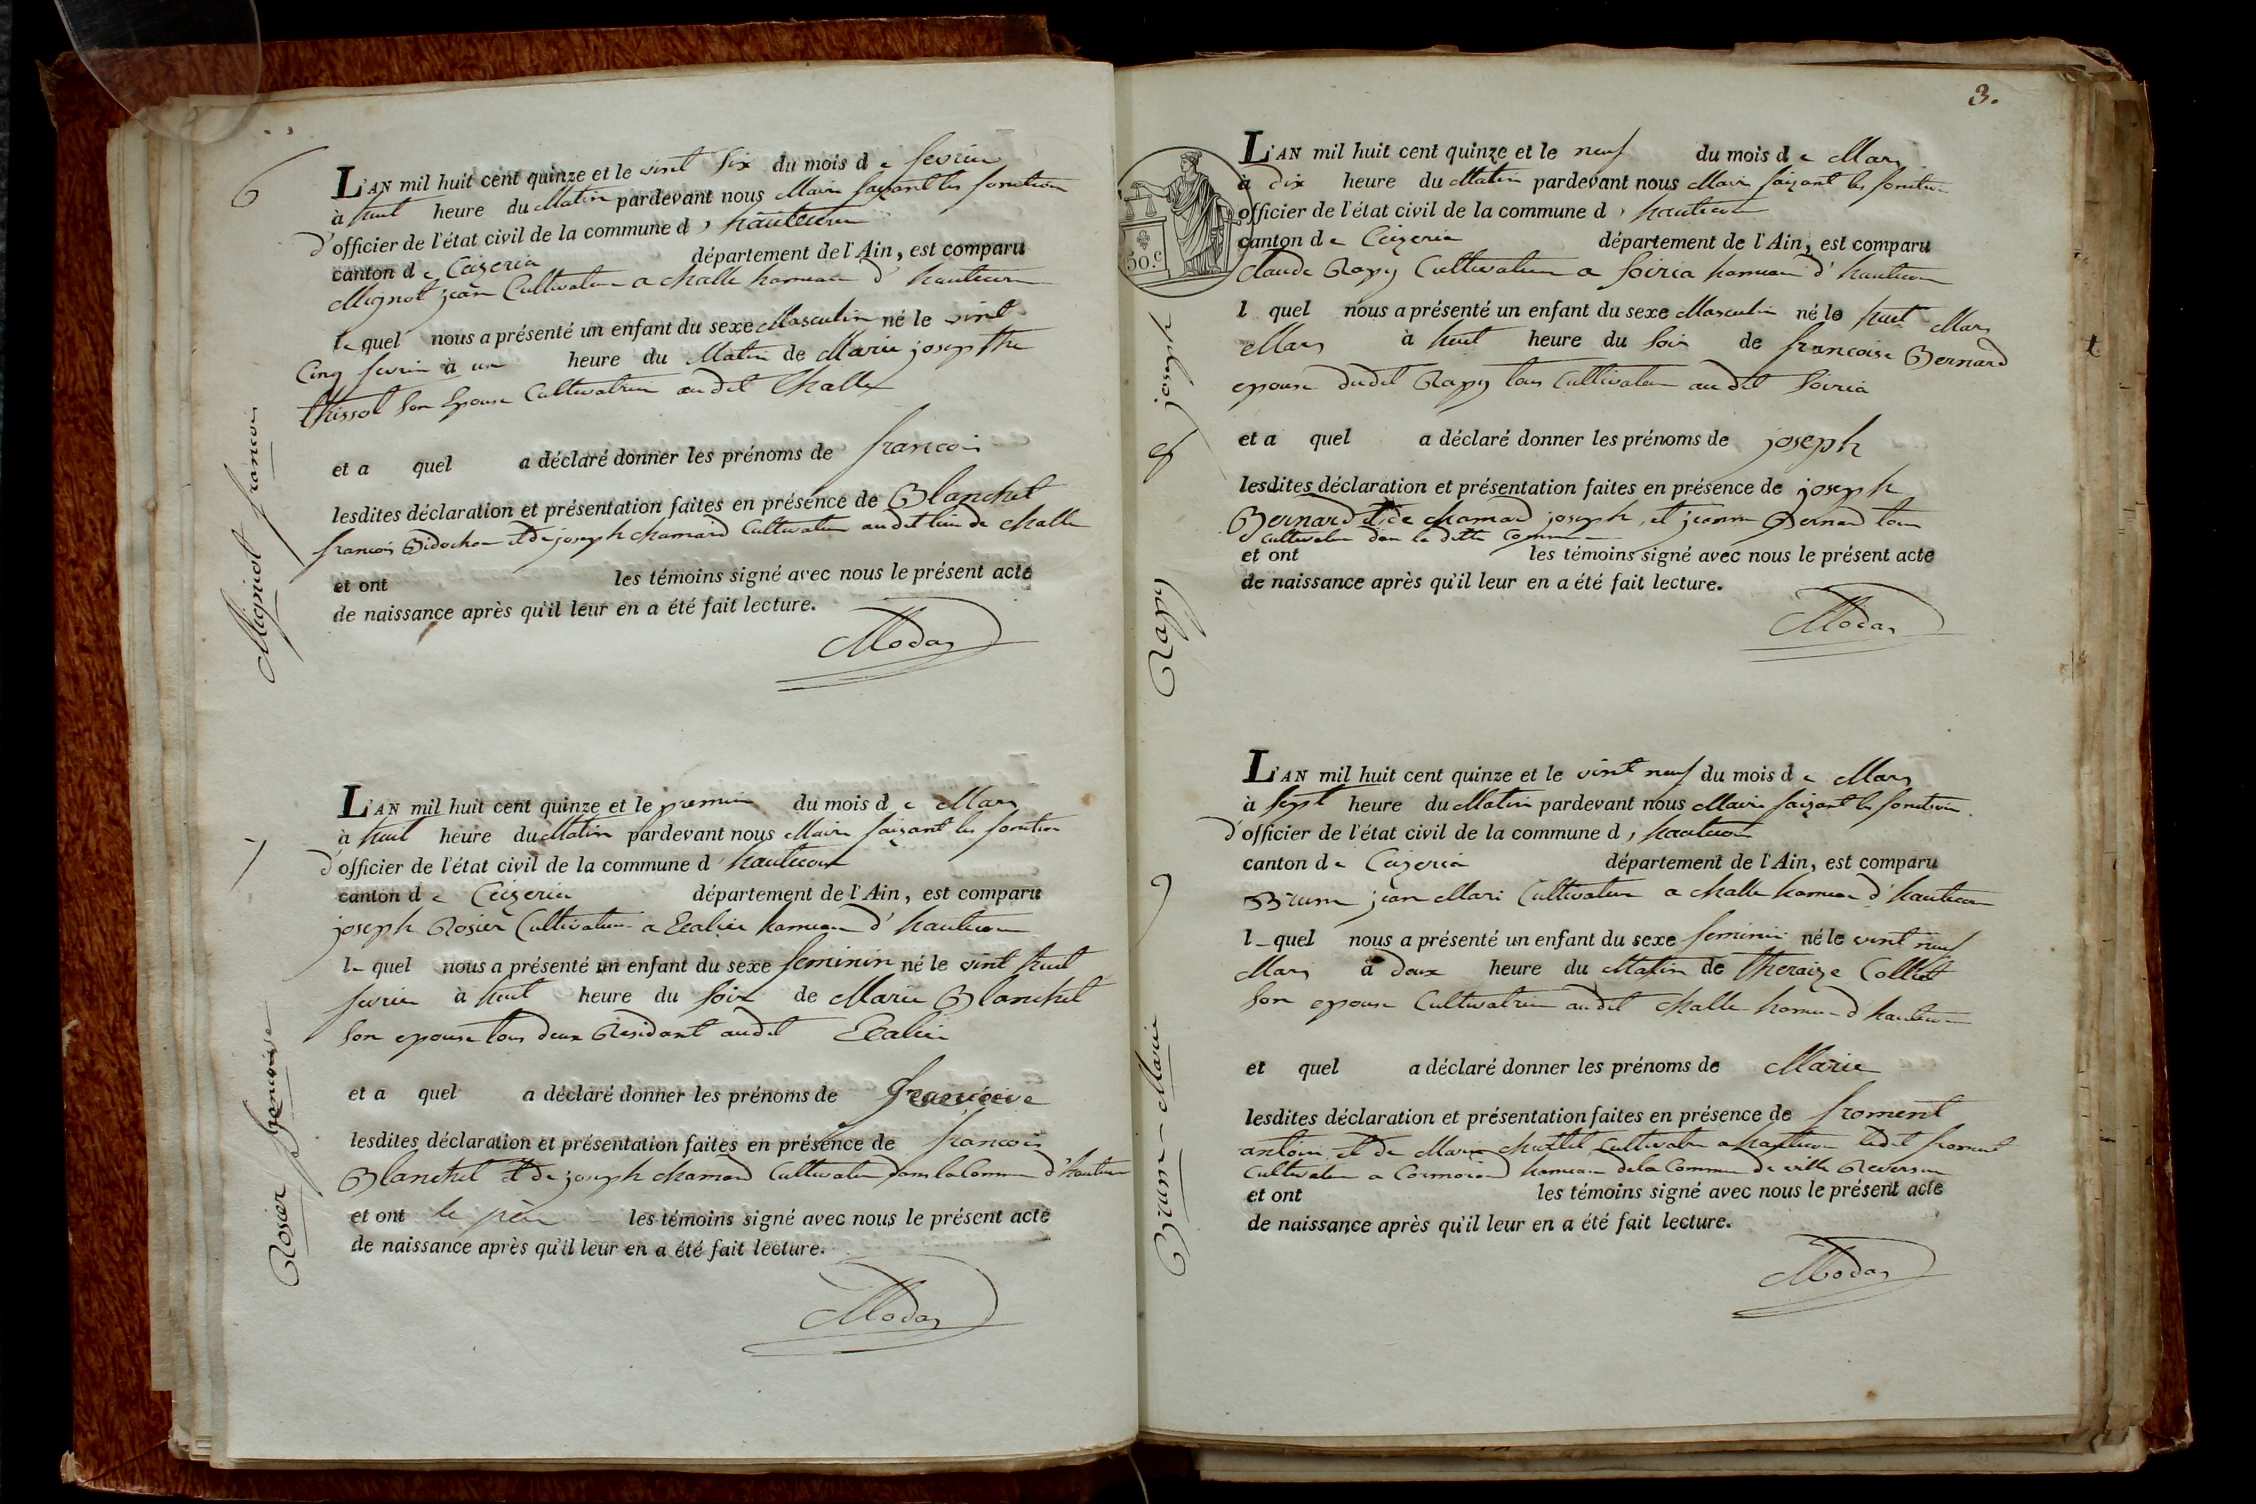 6
Mignot francois
L'AN mil huit cent quinze et le vint six du mois de fevrier
à huit heure du Matin pardevant nous Maire faizant les fonction
d'officier de l'état civil de la commune d' hautecour
canton de Ceizeria département de l'Ain, est comparu
Mignot jean Cultivateur a challe hameau d' hautecour
le quel nous a présenté un enfant du sexe Masculin né le vint
Cinq fevrier à un heure du Matin de Marie josepthe
thissot son Epouse Cultivatrice au dit Challe
et a quel a déclaré donner les prénoms de francois
lesdites déclaration et présentation faites en présence de Blanchet
francois Bidochon et de joseph chamard Cultivateur au dit lieu de challe
et ont les témoins signé avec nous le présent acte
de naissance après qu'il leur en a été fait lecture.
Modas
7
Rosier francoise
L'AN mil huit cent quinze et le premier du mois de Mars
à huit heure du Matin pardevant nous Maire faizant les fonction
d'officier de l'état civil de la commune d' hautecour
canton de Ceizeria département de l'Ain, est comparu
joseph Rosier Cultivateur a hameau d' hautecour
l- quel nous a présenté un enfant du sexe feminin né le vint huit
fevrier à huit heure du soir de Marie Blanchet
son epouse tous deux Residant audit
et a quel a déclaré donner les prénoms de francoise
lesdites déclaration et présentation faites en présence de francois
Blanchet et de joseph chamard Cultivateur dans la Commune d'hautecour
et ont le père les témoins signé avec nous le présent acte
de naissance après qu'il leur en a été fait lecture.
Modas
3.
50.c
8 Rapy joseph
L'AN mil huit cent quinze et le neuf du mois de Mars
à dix heure du Matin pardevant nous Maire faizant les fonction
officier de l'état civil de la commune d' hautecour
canton de Ceizeria département de l'Ain, est comparu
Claude Rapy Cultivateur a Soiria hameau d' hautecour
l quel nous a présenté un enfant du sexe Masculin né le huit Mars
Mars à huit heure du soir de francoise Bernard
epouse dudit Rapy tous Cultivateur au dit Soiria
et a quel a déclaré donner les prénoms de joseph
lesdites déclaration et présentation faites en présence de joseph
Bernard et de chamard joseph, et Bernard tous
Cultivateur dans la ditte Commune
et ont les témoins signé avec nous le présent acte
de naissance après qu'il leur en a été fait lecture.
Modas
9
Brun Marie
L'AN mil huit cent quinze et le vint neuf du mois de Mars
à sept heure du Matin pardevant nous Maire faizant les fonction
d'officier de l'état civil de la commune d' hautecour
canton de Ceizeria département de l'Ain, est comparu
Brun jean Mari Cultivateur a challe hameau d' hautecour
l- quel nous a présenté un enfant du sexe feminin né le vint neuf
Mars à deux heure du Matin de theraize Colliet
son epouse Cultivatrice au dit challe hameau d' hautecour
et quel a déclaré donner les prénoms de Marie
lesdites déclaration et présentation faites en présence de froment
antoine, et de Marie Cultivateur a hautecour ledit froment
Cultivateur a Cormoion hameau de la Commune de ville Reversure
et ont les témoins signé avec nous le présent acte
de naissance après qu'il leur en a été fait lecture.
Modas